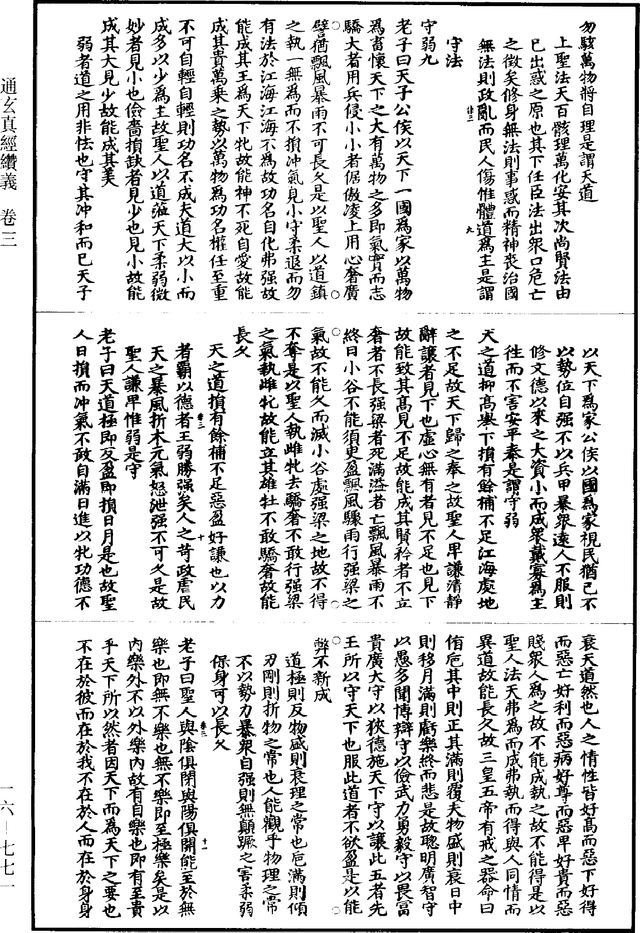 通玄真經纘義 卷三
勿駭萬物將自理是謂天道
上聖法天百骸理萬化安其次尚賢法由
已出惑之原也其下任臣法出衆口危亡
之徵矣修身無法則事惑而精神喪治國
無法則政亂而民人傷惟體道爲主是謂
守法
守弱九
老子曰天子公侯以天下一國爲家以萬物
爲畜懷天下之大有萬物之多即氣實而志
驕大者用兵侵小小者倨傲凌上用心奢廣
譬猶飄風暴雨不可長久是以聖人以道鎮
之執一無爲而不損冲氣見小守柔退而勿
有法於江海江海不爲故功名自化弗强故
能成其王爲天下牝故能神不死自愛故能
成其貴萬乘之勢以萬物爲功名權任至重
不可自輕自輕則功名不成夫道大以小而
成多以少爲主故聖人以道蒞天下柔弱微
妙者見小也儉嗇損缺者見少也見小故能
成其大見少故能成其美
弱者道之用非怯也守其冲和而已天子
以天下爲家公侯以國爲家視民猶己不
以勢位自强不以兵甲暴衆遠人不服則
修文德以來之大資小而成衆戴寡爲主
往而不害安平泰是謂守弱
天之道抑高舉下損有餘補不足江海處地
之不足故天下歸之奉之故聖人卑謙清靜
辭讓者見下也虛心無有者見不足也見下
故能致其高見不足故能成其賢矜者不立
奢者不長强梁者死滿溢者亡飄風暴雨不
終日小谷不能須臾盈飄風驟雨行强梁之
氣故不能久而滅小谷處强梁之地故不得
不奪是以聖人執雌牝去驕奢不敢行强梁
之氣執雌牝故能立其雄牡不敢驕奢故能
長久
天之道損有餘補不足惡盈好謙也以力
者霸以德者王弱勝强矣人之苛政虐民
天之暴風折木元氣怒泄强不可久是故
聖人謙卑惟弱是守
老子曰天道極即反盈即損日月是也故聖
人日損而冲氣不敢自滿日進以牝功德不
衰天道然也人之情性皆好高而惡下好得
而惡亡好利而惡病好尊而惡卑好貴而惡
賤衆人爲之故不能成執之故不能得是以
聖人法天弗爲而成弗執而得與人同情而
異道故能長久故三皇五帝有戒之器命曰
侑卮其中則正其滿則覆夫物盛則衰日中
則移月滿則虧樂終而悲是故聰明廣智守
以愚多聞博辯守以儉武力勇毅守以畏富
貴廣大守以狹德施天下守以讓此五者先
王所以守天下也服此道者不欲盈是以能
弊不新成
道極則反物盛則衰理之常也卮滿則傾
刃剛則折物之常也人能觀乎物理之常
不以勢力暴衆自强則無顛蹶之害柔弱
保身可以長久
老子曰聖人與陰俱閉與陽俱開能至於無
樂也即無不樂也無不樂即至極樂矣是以
內樂外不以外樂內故有自樂也即有至貴
乎天下所以然者因天下而爲天下之要也
不在於彼而在於我不在於人而在於身身
一六—七七一